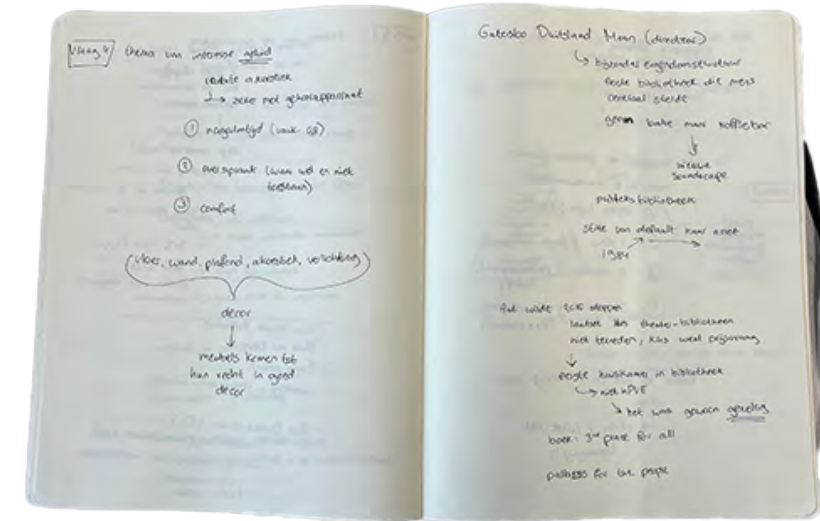 Vraag 4 thema van interesse geluid
ruimte akoestiek
zeker met gehoorapparaat
① nagalmtijd (vaak
② overspraak (waar wel en niet
toelaten)
③ comfort
(vloer, wand, plafond, akoestiek, verlichting)
decor
meubels komen tot
hun recht in goed
decor
Gutersloo Duitsland Mohn (directeur)
bijzonder eigendomsstructuur
eerste bibliotheek die mens
centraal stelde
geen balie maar koffiebar
nieuwe
soundscape
publieksbibliotheek
stilte van default naar
1984
wilde stoppen
theater-bibliotheek
niet tevreden, Klus werd prijsvraag
eerste huiskamer in bibliotheek
niet in PVE
het was gewoon gezellig
boek: 3rd place for all
palaces for the people